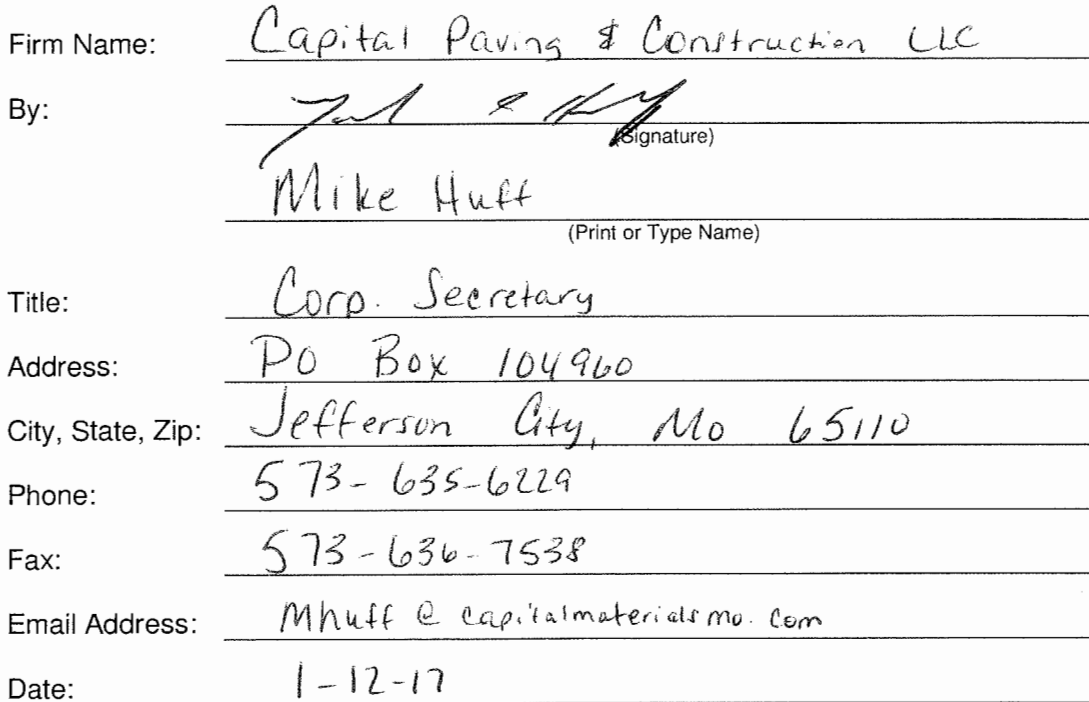 Firm Name: Capital Paving & Construction LLC
By:
(Signature)
Mike Huff
(Print or Type Name)
Title: Corp. Secretary
Address: PO Box 104960
City, State, Zip: Jefferson City, Mo 65110
Phone: 573-635-6229
Fax: 573-636-7538
Email Address: Mhuff@capitalmaterialsmo.com
Date: 1-12-17